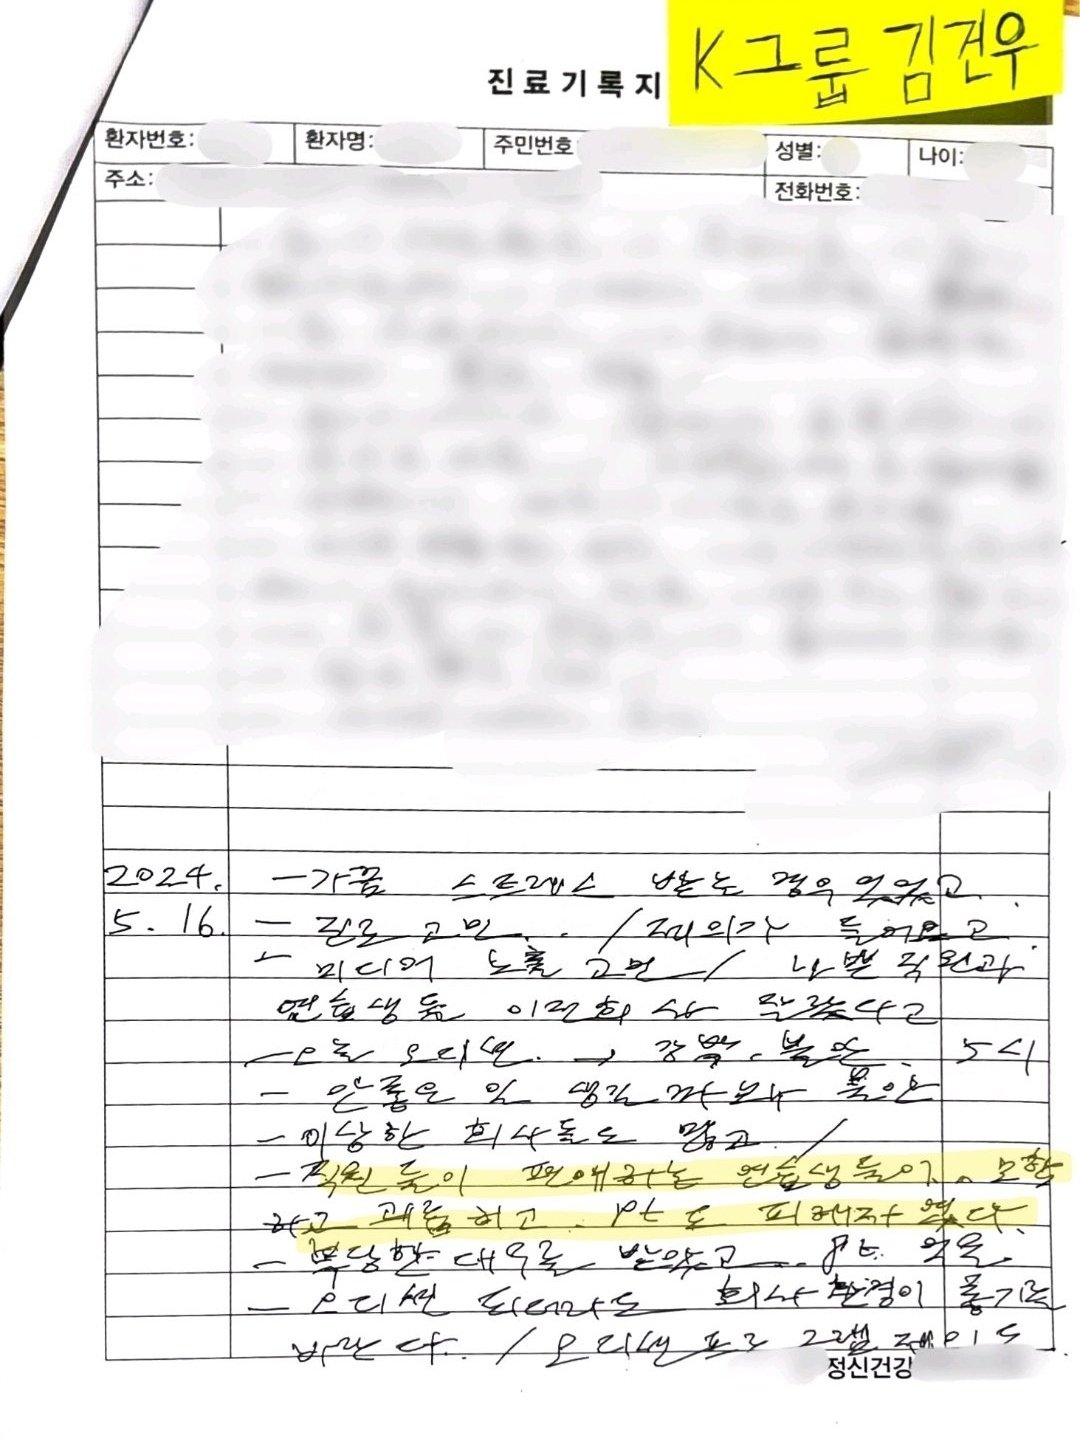 K그룹 김건우
진료기록지
환자번호: 환자명: 주민번호 성별: 나이:
주소: 전화번호:
2024. - 가끔 스트레스 받는 경우 있었고.
5. 16. - 진로 고민.. / 제의가 들어오고.
- 미디어 노출 고민 / 나쁜 직원과
연습생들 이전회사 많았다고
- 오늘 오디션. → 강박. 불안. 5시
- 안좋은 일 생길까봐 불안
- 이상한 회사들도 많고. /
- 직원들이 편애하는 연습생들이. 모함
하고 괴롭히고. pt도 피해자였다.
- 부당한 대우를 받았고.. pt. 억울.
- 오디션 되더라도 회사 환경이 좋기를
바란다. / 오디션 프로그램 제의도
정신건강